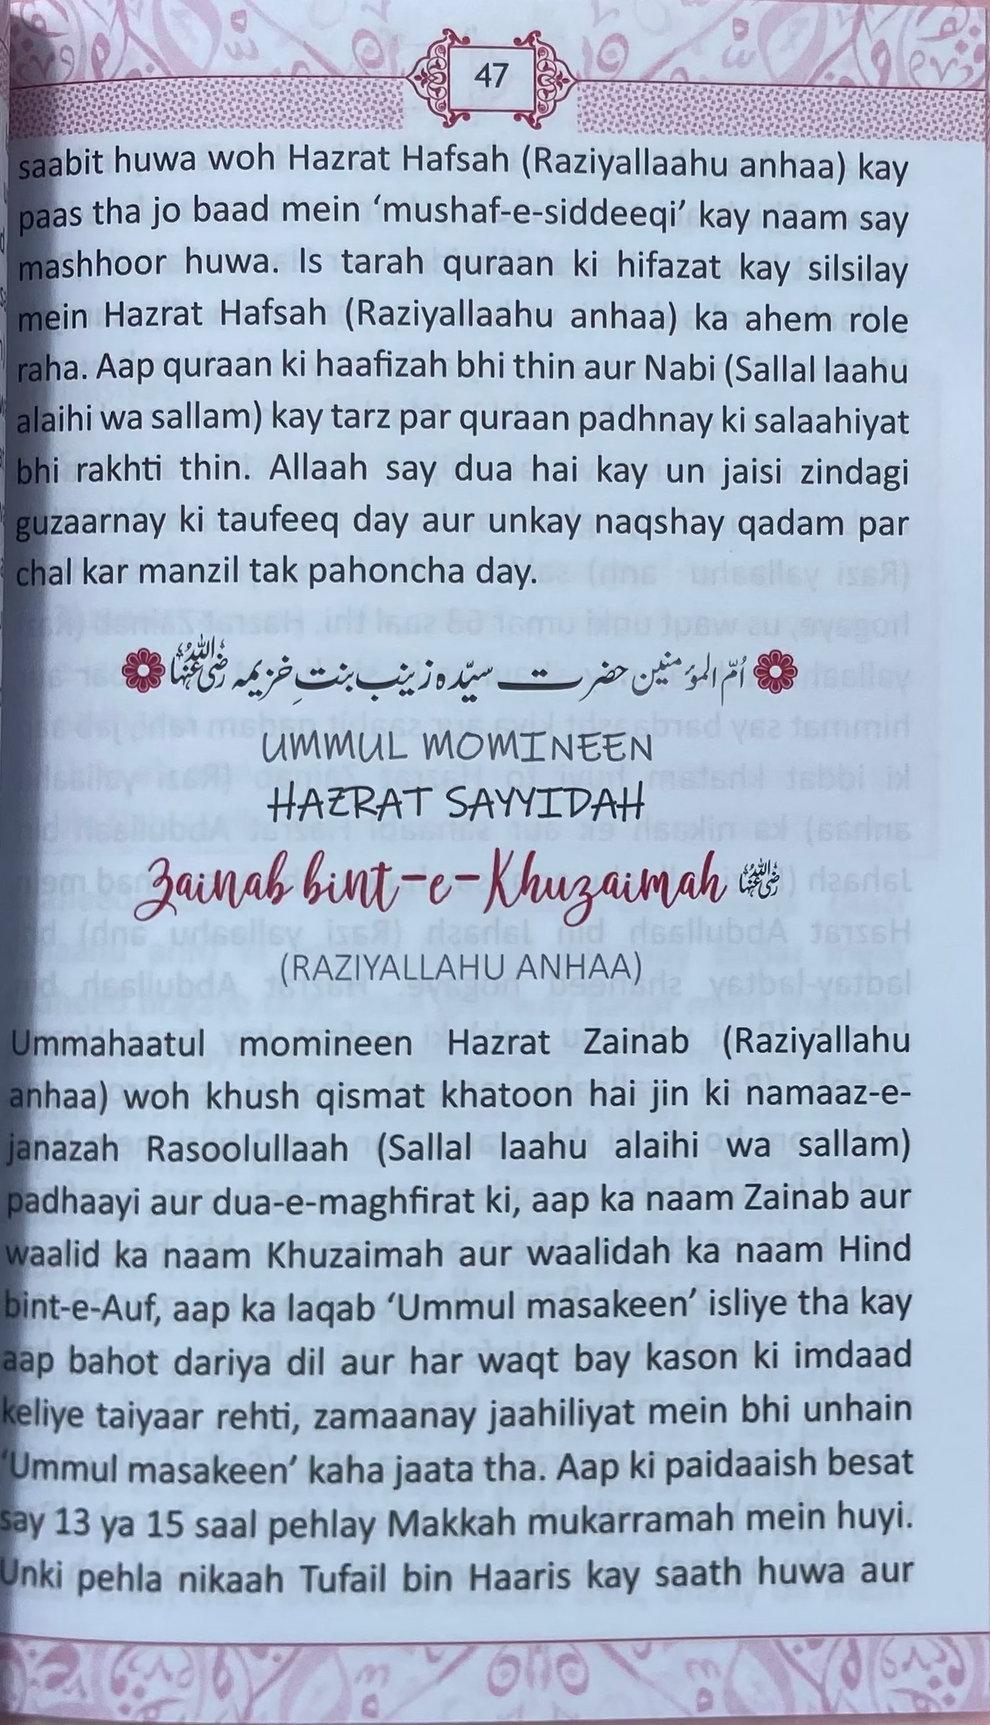 47
saabit huwa woh Hazrat Hafsah (Raziyallaahu anhaa) kay
paas tha jo baad mein ‘mushaf-e-siddeeqi’ kay naam say
mashhoor huwa. Is tarah quraan ki hifazat kay silsilay
mein Hazrat Hafsah (Raziyallaahu anhaa) ka ahem role
raha. Aap quraan ki haafizah bhi thin aur Nabi (Sallal laahu
alaihi wa sallam) kay tarz par quraan padhnay ki salaahiyat
bhi rakhti thin. Allaah say dua hai kay un jaisi zindagi
guzaarnay ki taufeeq day aur unkay naqshay qadam par
chal kar manzil tak pahoncha day.
اُمّ المؤمنین حضرت سیّدہ زینب بنتِ خزیمہ رضی اللہ عنہا
UMMUL MOMINEEN
HAZRAT SAYYIDAH
Zainab bint-e-Khuzaimah رضی اللہ عنہا
(RAZIYALLAHU ANHAA)
Ummahaatul momineen Hazrat Zainab (Raziyallahu
anhaa) woh khush qismat khatoon hai jin ki namaaz-e-
janazah Rasoolullaah (Sallal laahu alaihi wa sallam)
padhaayi aur dua-e-maghfirat ki, aap ka naam Zainab aur
waalid ka naam Khuzaimah aur waalidah ka naam Hind
bint-e-Auf, aap ka laqab ‘Ummul masakeen’ isliye tha kay
aap bahot dariya dil aur har waqt bay kason ki imdaad
keliye taiyaar rehti, zamaanay jaahiliyat mein bhi unhain
‘Ummul masakeen’ kaha jaata tha. Aap ki paidaaish besat
say 13 ya 15 saal pehlay Makkah mukarramah mein huyi.
Unki pehla nikaah Tufail bin Haaris kay saath huwa aur